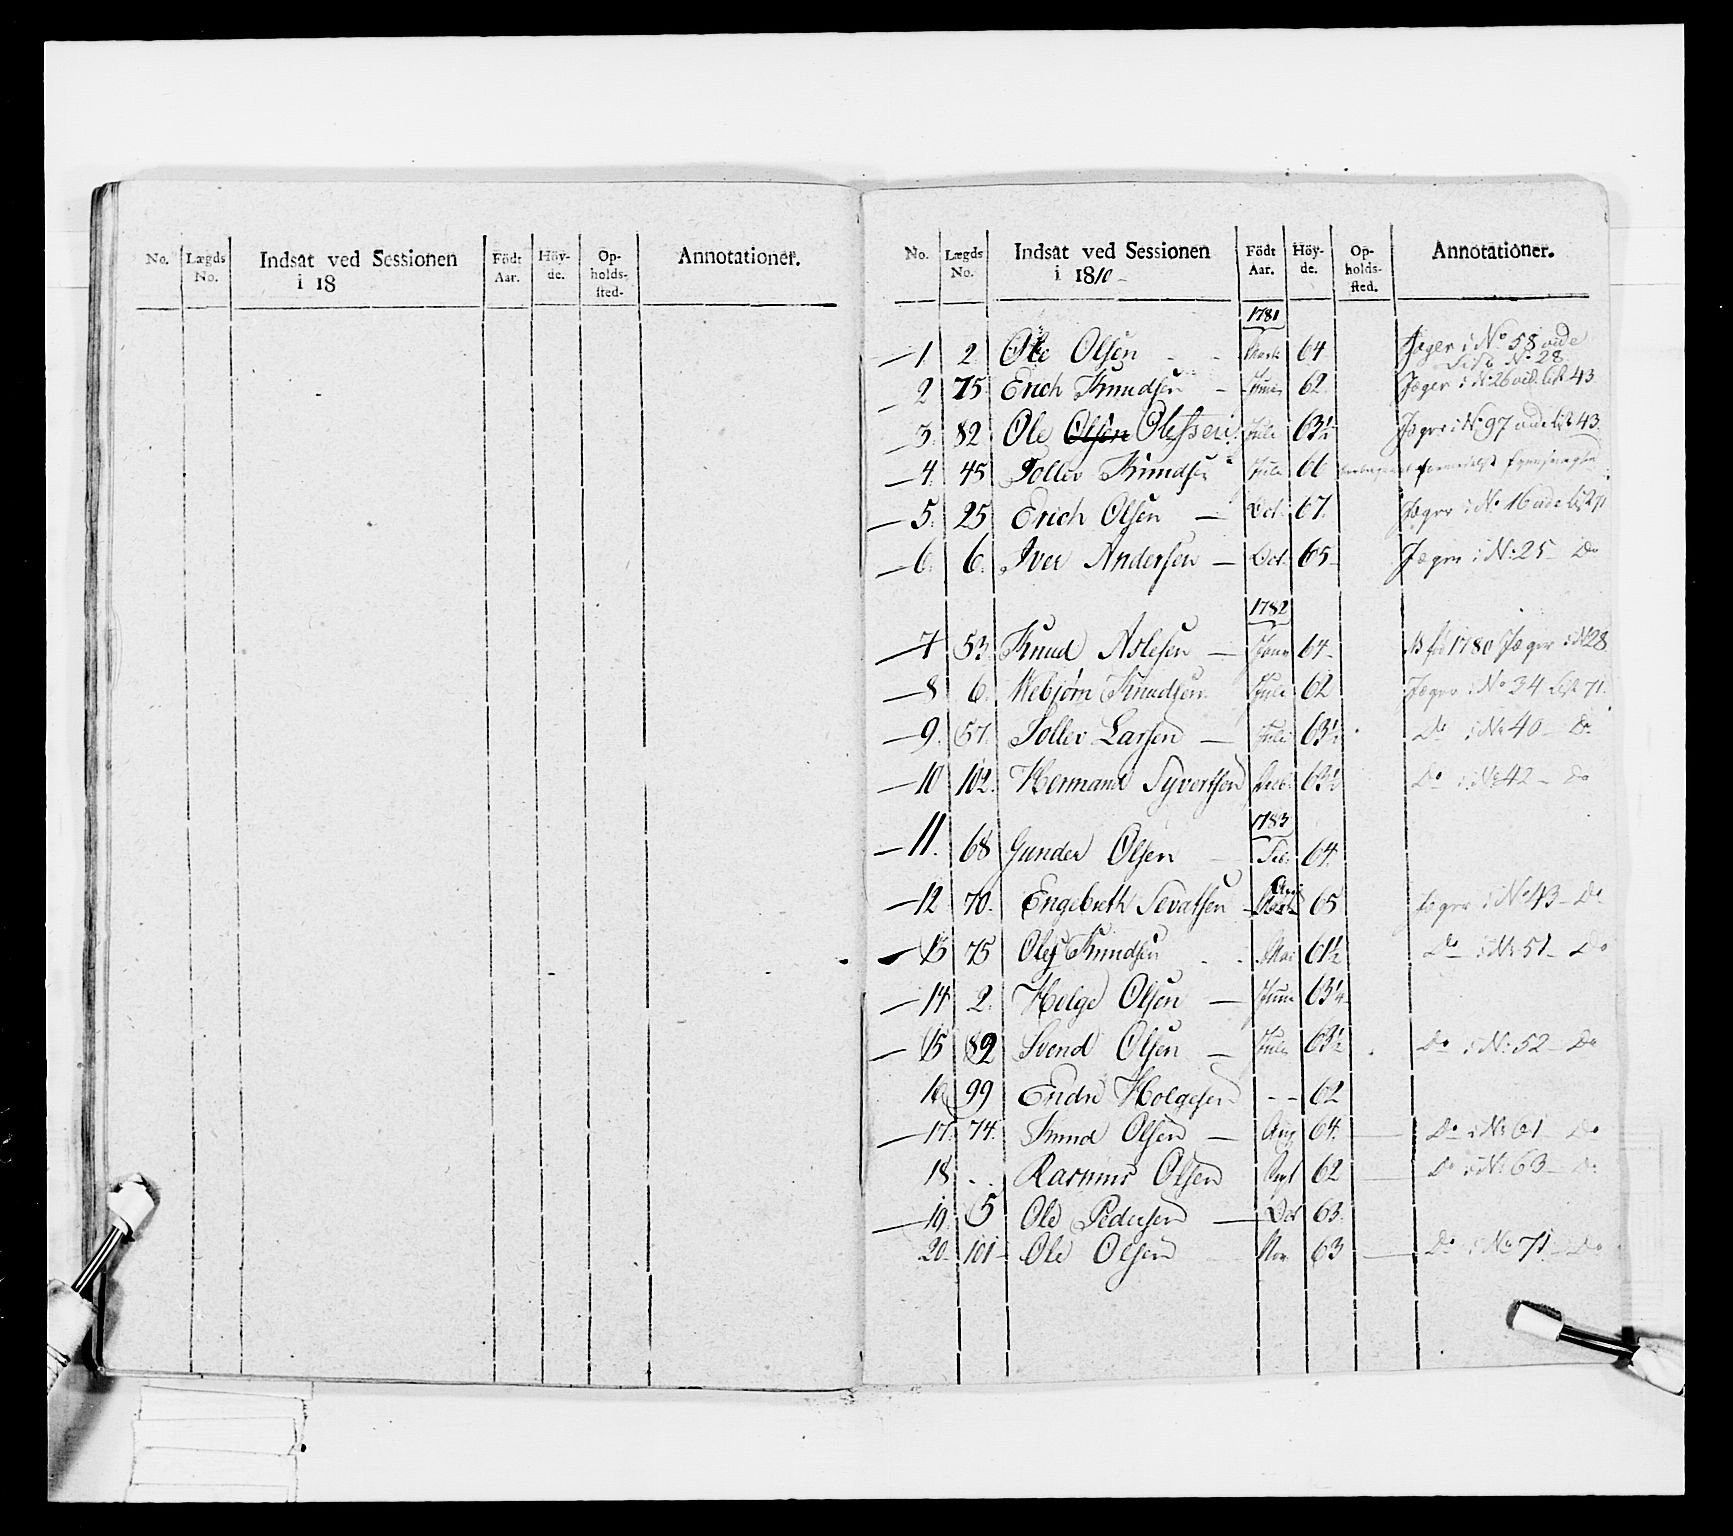 No. Lægds No. Indsat ved Sessionen i 18 Födt Aar. Höy- de. Op- holds- sted- Annotationer.
No. Lægds No. Indsat ved Sessionen i 1810 - Födt Aar. Höy- de. Op- holds- sted. Annotationer.
1781
1. 2. Ole Olsen - - 64 Jæger i No 58 vide
No 28
2 75 Erich Knudsen - Juni 62. Jæger i No 26 vid. List 43
3. 82 Ole Olsen Olessen Juli 63½ Jæger i No 97 vide List 43.
4. 45 Tollev Knudsen Juli 66
5. 25 Erich Olsen - Oct. 67. Jæger i No 16 vide
6. 6. Iver Andersen - Oct. 65- Jæger i No. 25- Do
1782
7 53. Knud Aslesen - Janr 64- fød 1780 Jæger i No 28
8 6. Knudsen Juli 62 Jæger i No 34 List 71.
9. 57. Tollev Larsen - Juli 63½ Do i No 40 - Do
10 102. Hermand Syvertsen Decb. 63½ Do i No 42 - Do
1783
11. 68 Gunder Olsen - Feb. 64.
12 70. Engebreth Sevatsen - 65 Jæger i No 43 - Do
13 75 Ole Knudsen - - Mai 61½ Do i No 51- Do
14 2. Helge Olsen - Juni 63¼
15 82 Svend Olsen - Juli 63½ Do i No. 52 - Do
16 99 Endre Holgesen - - 62
17. 74. Knud Olsen - Aug 64. Do i No 61 - Do
18 - - Rasmus Olsen 62 Do i No 63 - Do
19. 5 Ole Pedersen - Oct 63.
20. 101- Ole Olsen Nov 63 Do i No 71 - Do